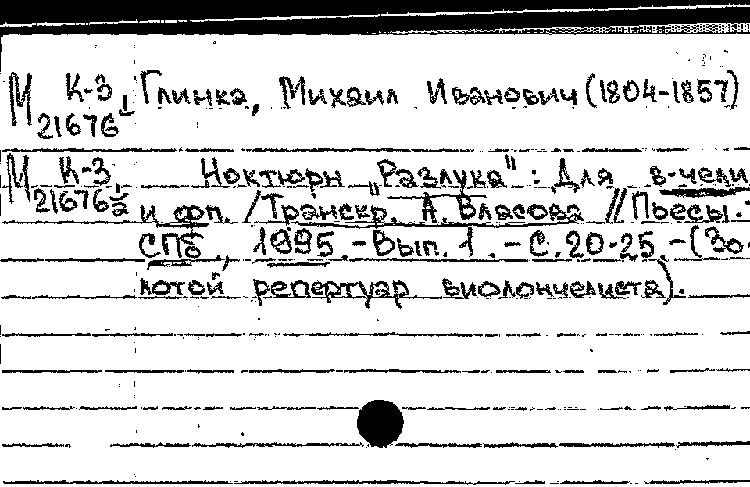 М К-3 Глинка, Михаил Иванович (1804-1857)
21676 1
М К-3 Ноктюрн "Разлука": Для в-чели
21676 1/2 и фп. / Транскр. А. Власова // Пьесы. -
СПб., 1995. - Вып. 1. - С. 20-25. - (Зо-
лотой репертуар виолончелиста).